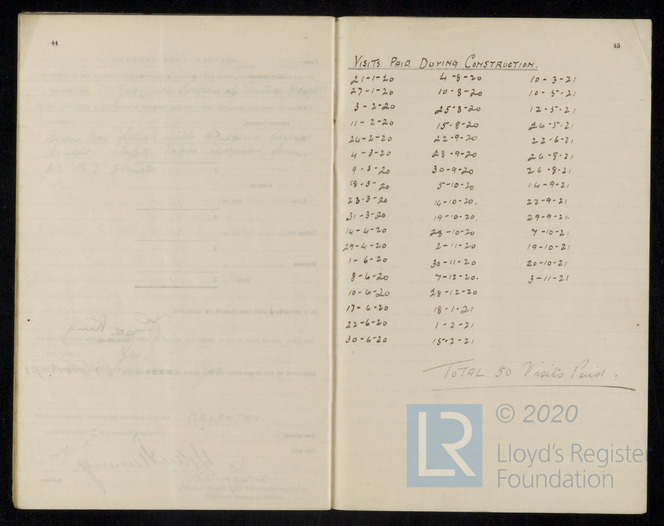 44
45
VISITS PAID DURING CONSTRUCTION.
21-1-20 4-8-20 10-3-21
27-1-20 10-8-20 10-5-21
3-2-20 25-8-20 12-5-21
11-2-20 15-8-20 26-5-21
24-2-20 22-9-20 22-6-21
4-3-20 28-9-20 26-8-21
9-3-20 30-9-20 26-8-21
18-3-20 5-10-20 14-9-21
23-3-20 14-10-20. 22-9-21
31-3-20 19-10-20. 29-9-21.
14-4-20 28-10-20 7-10-21
29-4-20 2-11-20 19-10-21
1-6-20 30-11-20 20-10-21
8-6-20 7-12-20. 3-11-21
10-6-20 28-12-20
17-6-20 18-1-21
22-6-20 1-2-21
30-6-20 15-2-21
TOTAL 50 Visits Paid.
LR © 2020
Lloyd's Register
Foundation